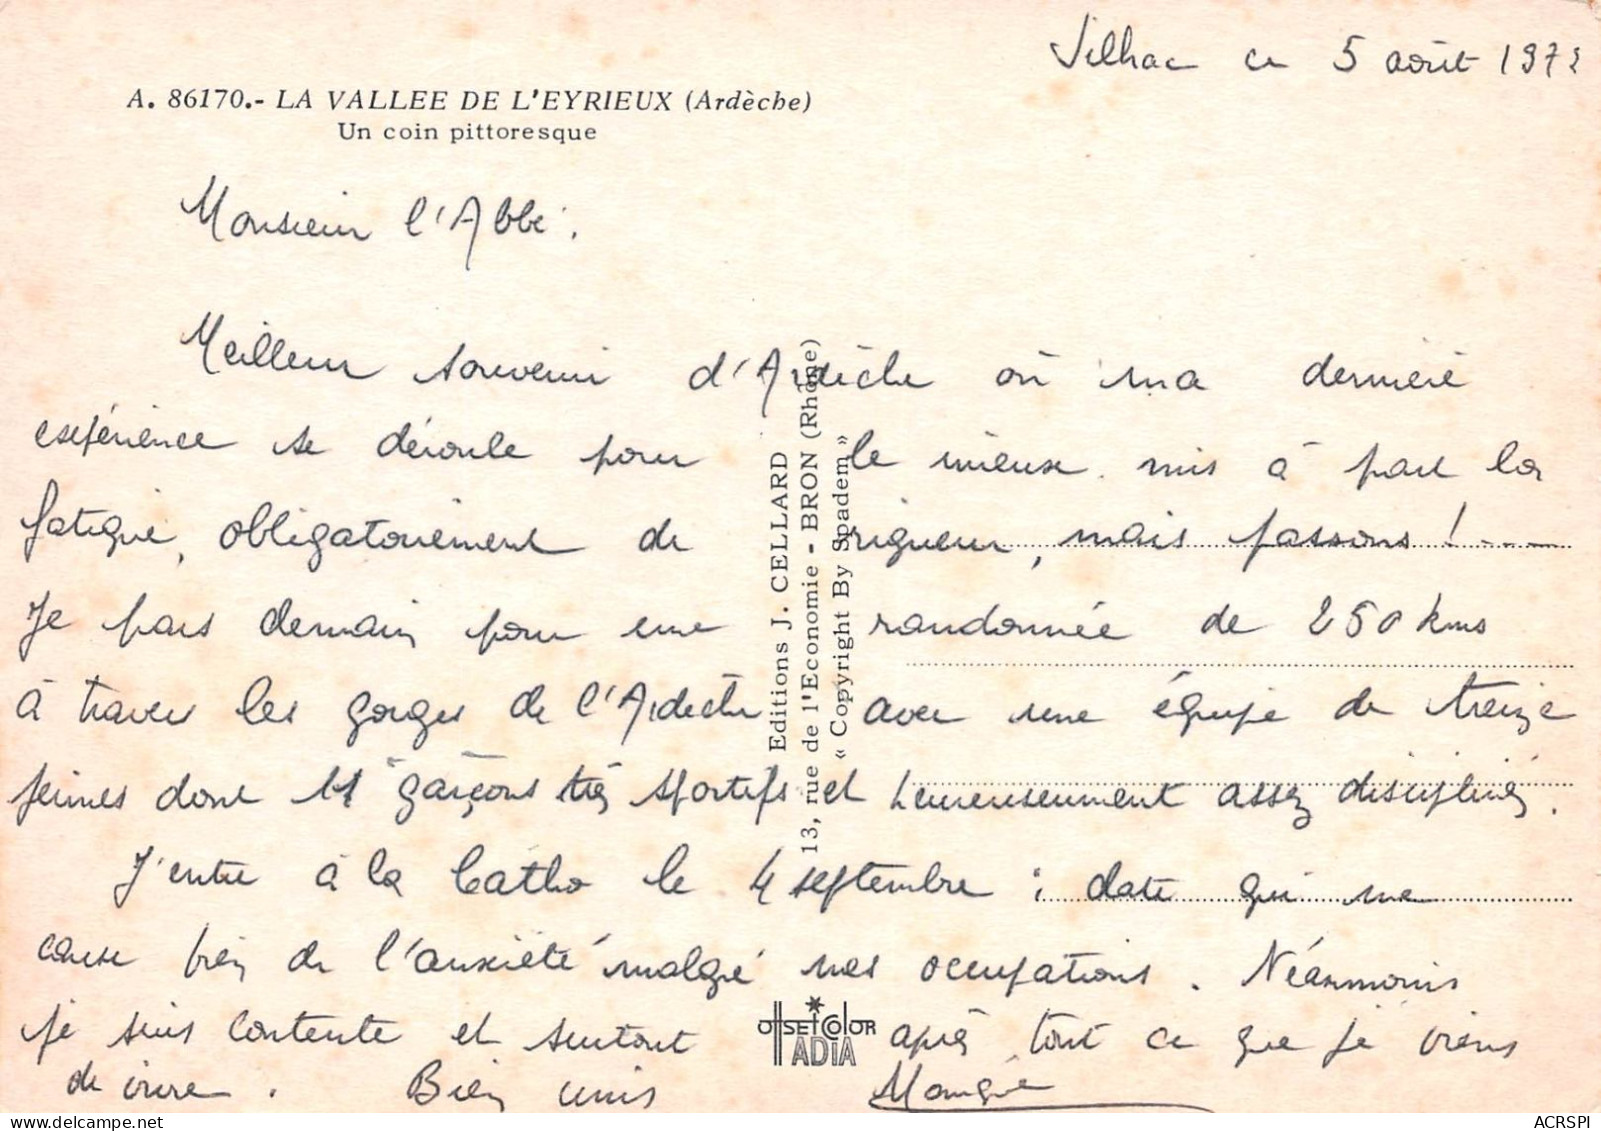 Silhac ce 5 août 1972
A. 86170.- LA VALLEE DE L'EYRIEUX (Ardèche)
Un coin pittoresque
Monsieur l'Abbé,
Meilleur souvenir d'Ardèche où ma dernière
expérience se déroule pour le mieux mis à part la
fatigue, obligatoirement de rigueur, mais passons ! ---
Je pars demain pour une randonnée de 250 kms
à travers les gorges de l'Ardèche avec une équipe de treize
jeunes dont 11 garçons très sportifs et heureusement assez disciplinés.
J'entre à la Catho le 4 septembre : date qui me
cause bien de l'anxiété malgré mes occupations. Néanmoins
je suis contente et surtout après tout ce que je viens
de vivre. Bien unis
Editions J. CELLARD
13, rue de l'Economie - BRON (Rhône)
« Copyright By Spadem »
OFFSET COLOR
ADIA
ACRSPI